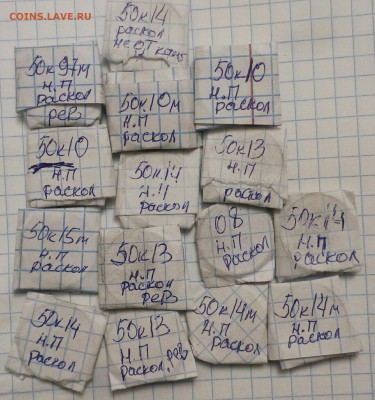 COINS.LAVE.RU
50к14
раскол
не от кант
50к97м
н.п
раскол
рев
50к10м
н.п
раскол
50к10
н.п
раскол
50к10
н.п
раскол
50к14
н.ч
раскол
50к13
н.п
раскол
50к15м
н.п
раскол
50к13
н.п
раскол
рев
08
н.п
раскол
50к14
н.п
раскол
50к14
н.п
раскол
50к13
н.п
раскол, рев
50к14м
н.п
раскол
50к14м
н.п
раскол